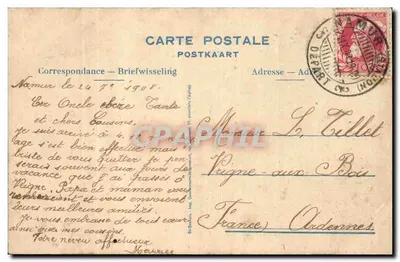 CARTE POSTALE
POSTKAART
Correspondance — Briefwisseling
Adresse — Ad
NAMUR (STATION)
DEPART
Namur le 24 7e 1908.
Cer Oncle chère Tante
et chers Cousins,
je suis arrivé à 4.
age s'est bien effectué mais
triste de vous quitter je pen
serais souvent aux jours de
vacance que j'ai passés à
Vrigne. Papa et maman vous
remercient et vous envoient
leurs meilleures amitiés.
Je vous embrasse de tout cœur
ainsi que mes cousins.
Votre neveu affectueux
Maurice
Monsieur L. Tillet
Vrigne-aux-Bois
France Ardennes